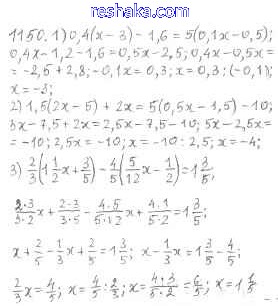 reshaka.com
1150. 1) 0,4(x-3) - 1,6 = 5(0,1x-0,5);
0,4x-1,2-1,6=0,5x-2,5; 0,4x-0,5x=
= -2,5+2,8; -0,1x = 0,3; x=0,3:(-0,1);
x=-3;
2) 1,5(2x-5) + 2x = 5(0,5x-1,5)-10;
3x-7,5+2x = 2,5x-7,5-10; 5x-2,5x=
= -10; 2,5x=-10; x=-10:2,5; x=-4;
3) 2/3(1 1/2x+3/5)-4/5(5/12x-1/2)=1 3/5;
2·3/3·2x+2·3/3·5-4·5/5·12x+4·1/5·2=1 3/5;
x+2/5-1/3x+2/5=1 3/5; x-1/3x=1 3/5-4/5;
2/3x=4/5; x=4/5:2/3; x=4·3/5·2=6/5; x=1 1/5